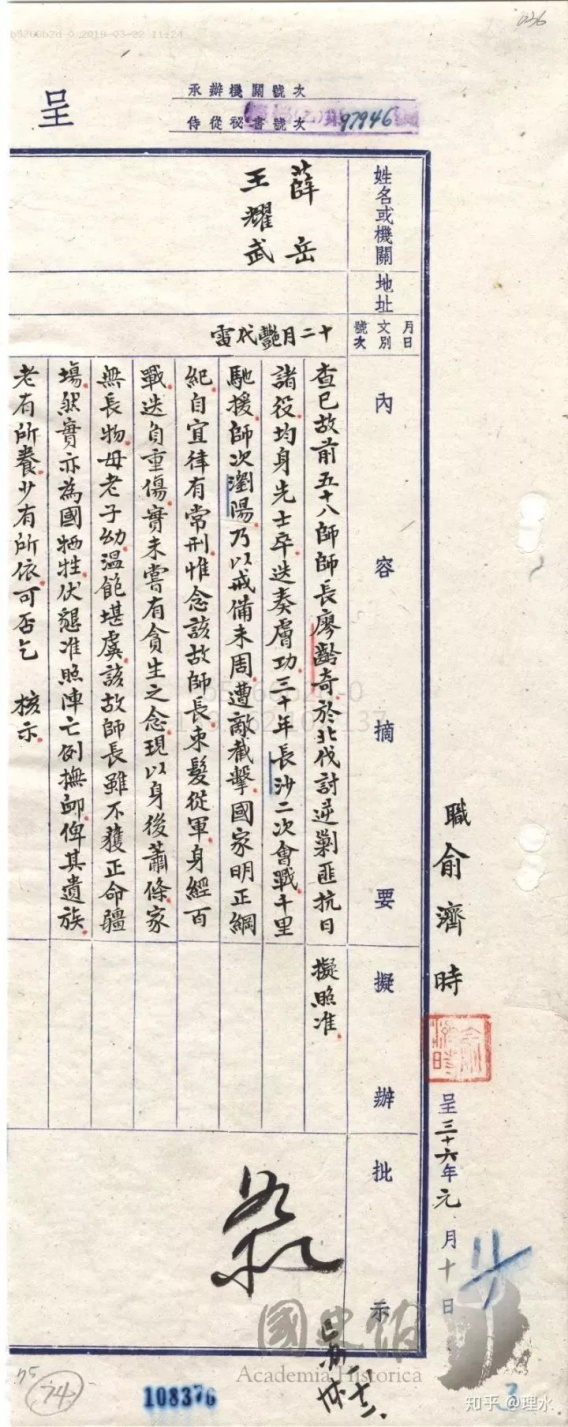 呈
承辦機關號次
侍從祕書號次 97946
姓名或機關
薛岳
王耀武
地址
月日
文別
號次
十二月艷代電
內容摘要
查已故前五十八師師長廖齡奇於北伐討逆剿匪抗日
諸役均身先士卒迭奏膚功三十年長沙二次會戰千里
馳援師次瀏陽乃以戒備未周遭敵截擊國家明正綱
紀自宜律有常刑惟念該故師長束髮從軍身經百
戰迭負重傷實未嘗有貪生之念現以身後蕭條家
無長物母老子幼溫飽堪虞該故師長雖不獲正命疆
場然實亦為國牺牲伏懇准照陣亡例撫卹俾其遺族
老有所養少有所依可否乞 核示
擬辦
擬照准
批示
職俞濟時
呈三十六年元月十日
國史館
Academia Historica
74
108376
3
知乎 @理水